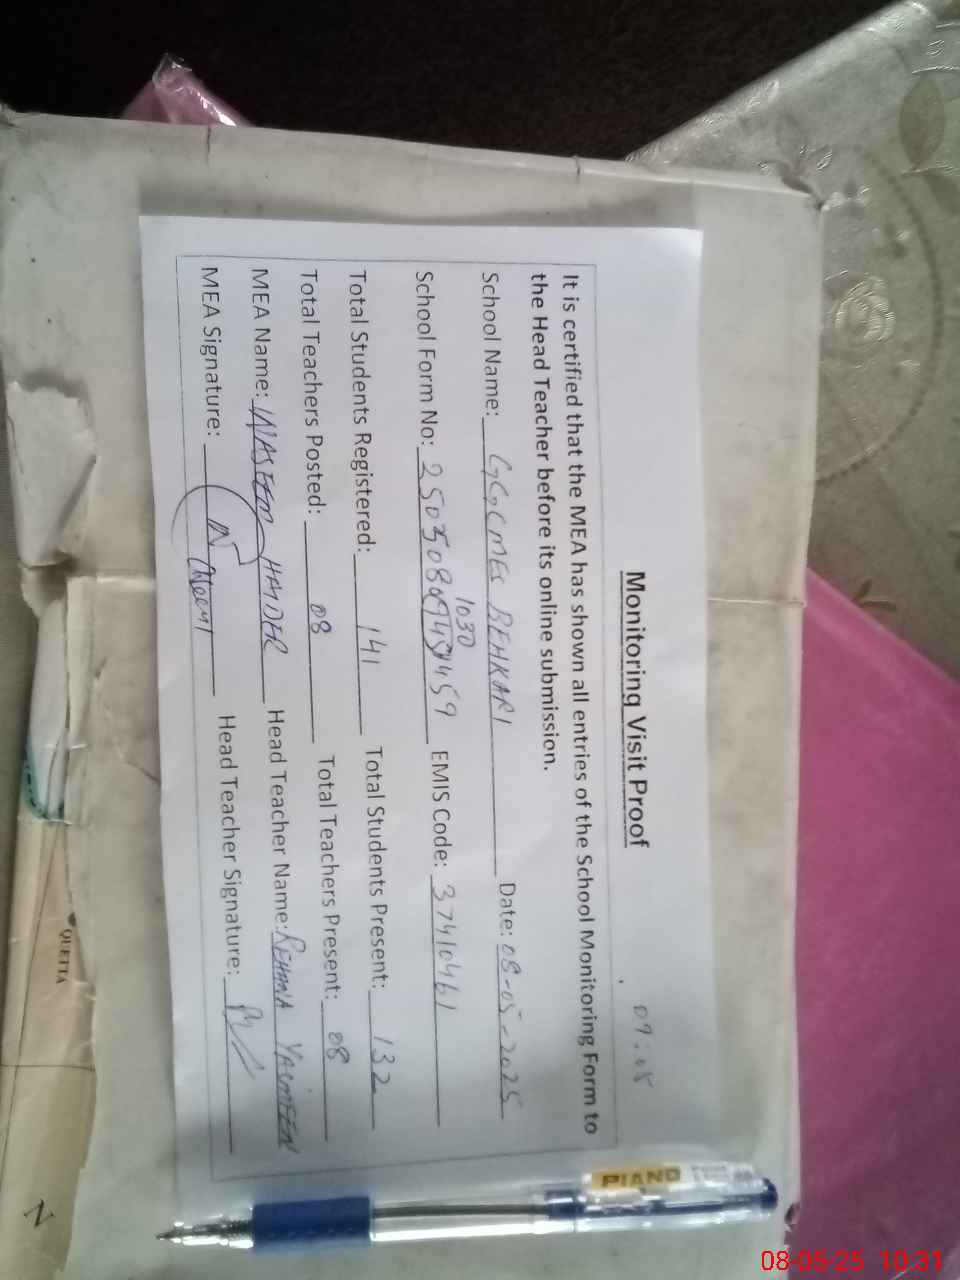 09:05
Monitoring Visit Proof
It is certified that the MEA has shown all entries of the School Monitoring Form to
the Head Teacher before its online submission.
School Name: GGCMES BEHKARI Date: 08-05-2025
1030
School Form No: EMIS Code: 37410461
Total Students Registered: 141 Total Students Present: 132
Total Teachers Posted: 08 Total Teachers Present: 08
MEA Name: WASEEM HAIDER Head Teacher Name: REHANA YASMEEN
MEA Signature: Head Teacher Signature:
PIANO
QUETTA
N
08-05-25 10:31